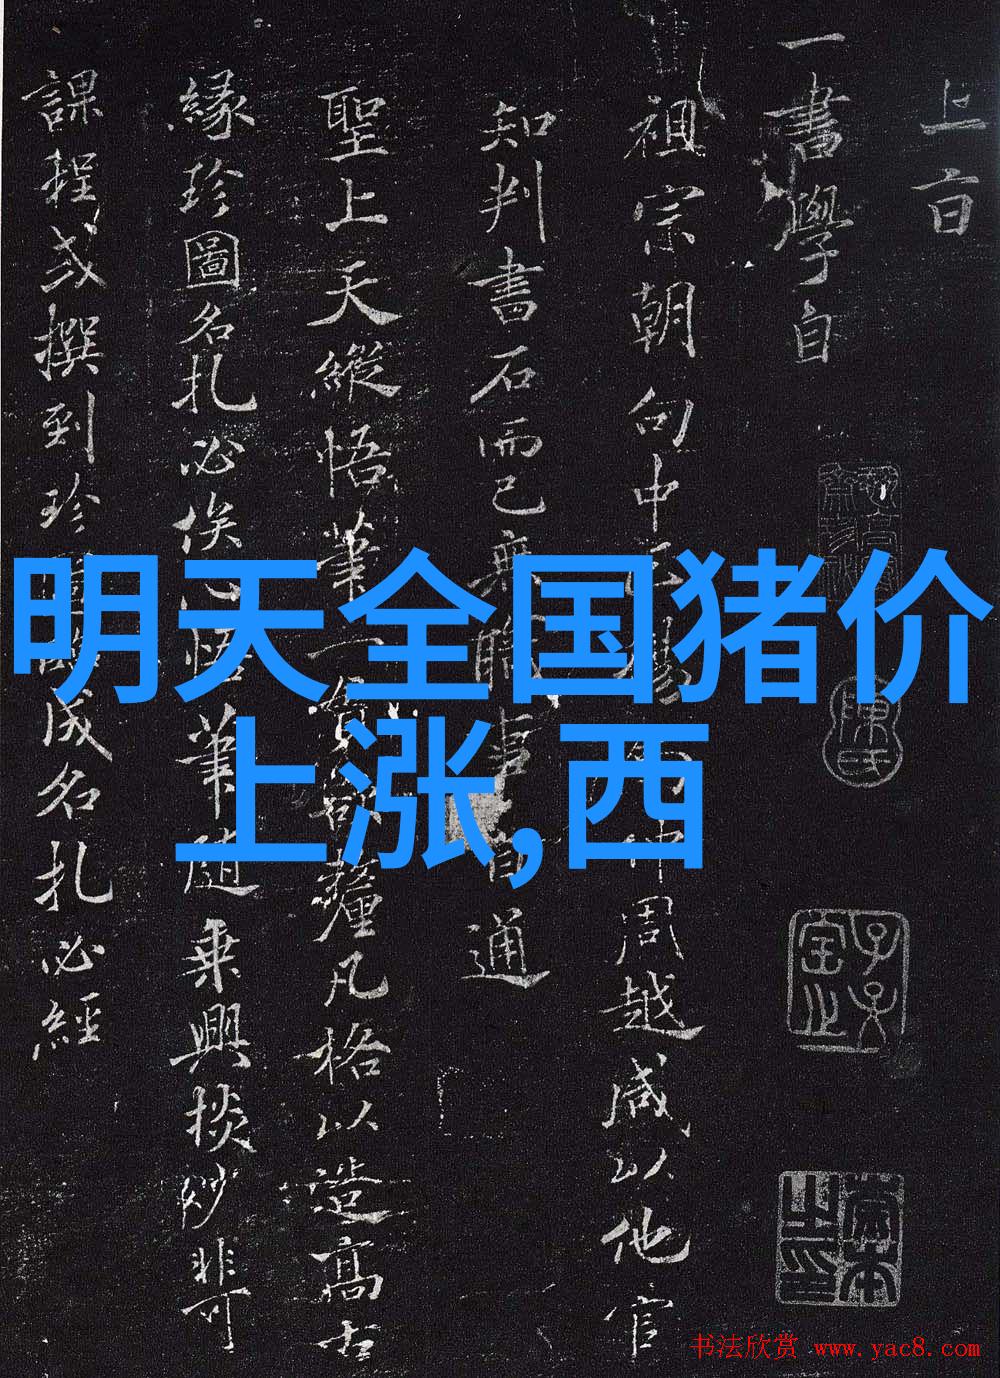 上
一書學自
祖宗朝句中仲周越咸以他官
知判書石而已無職事自通
聖上天縱悟筆一釐凡格以造高古
緣珍圖名札必俟悟筆隨乗興掞妙非可
課程或撰到珍成名札必經
明天全国猪价
上涨,西
陳氏
书法欣赏 www.yac8.com